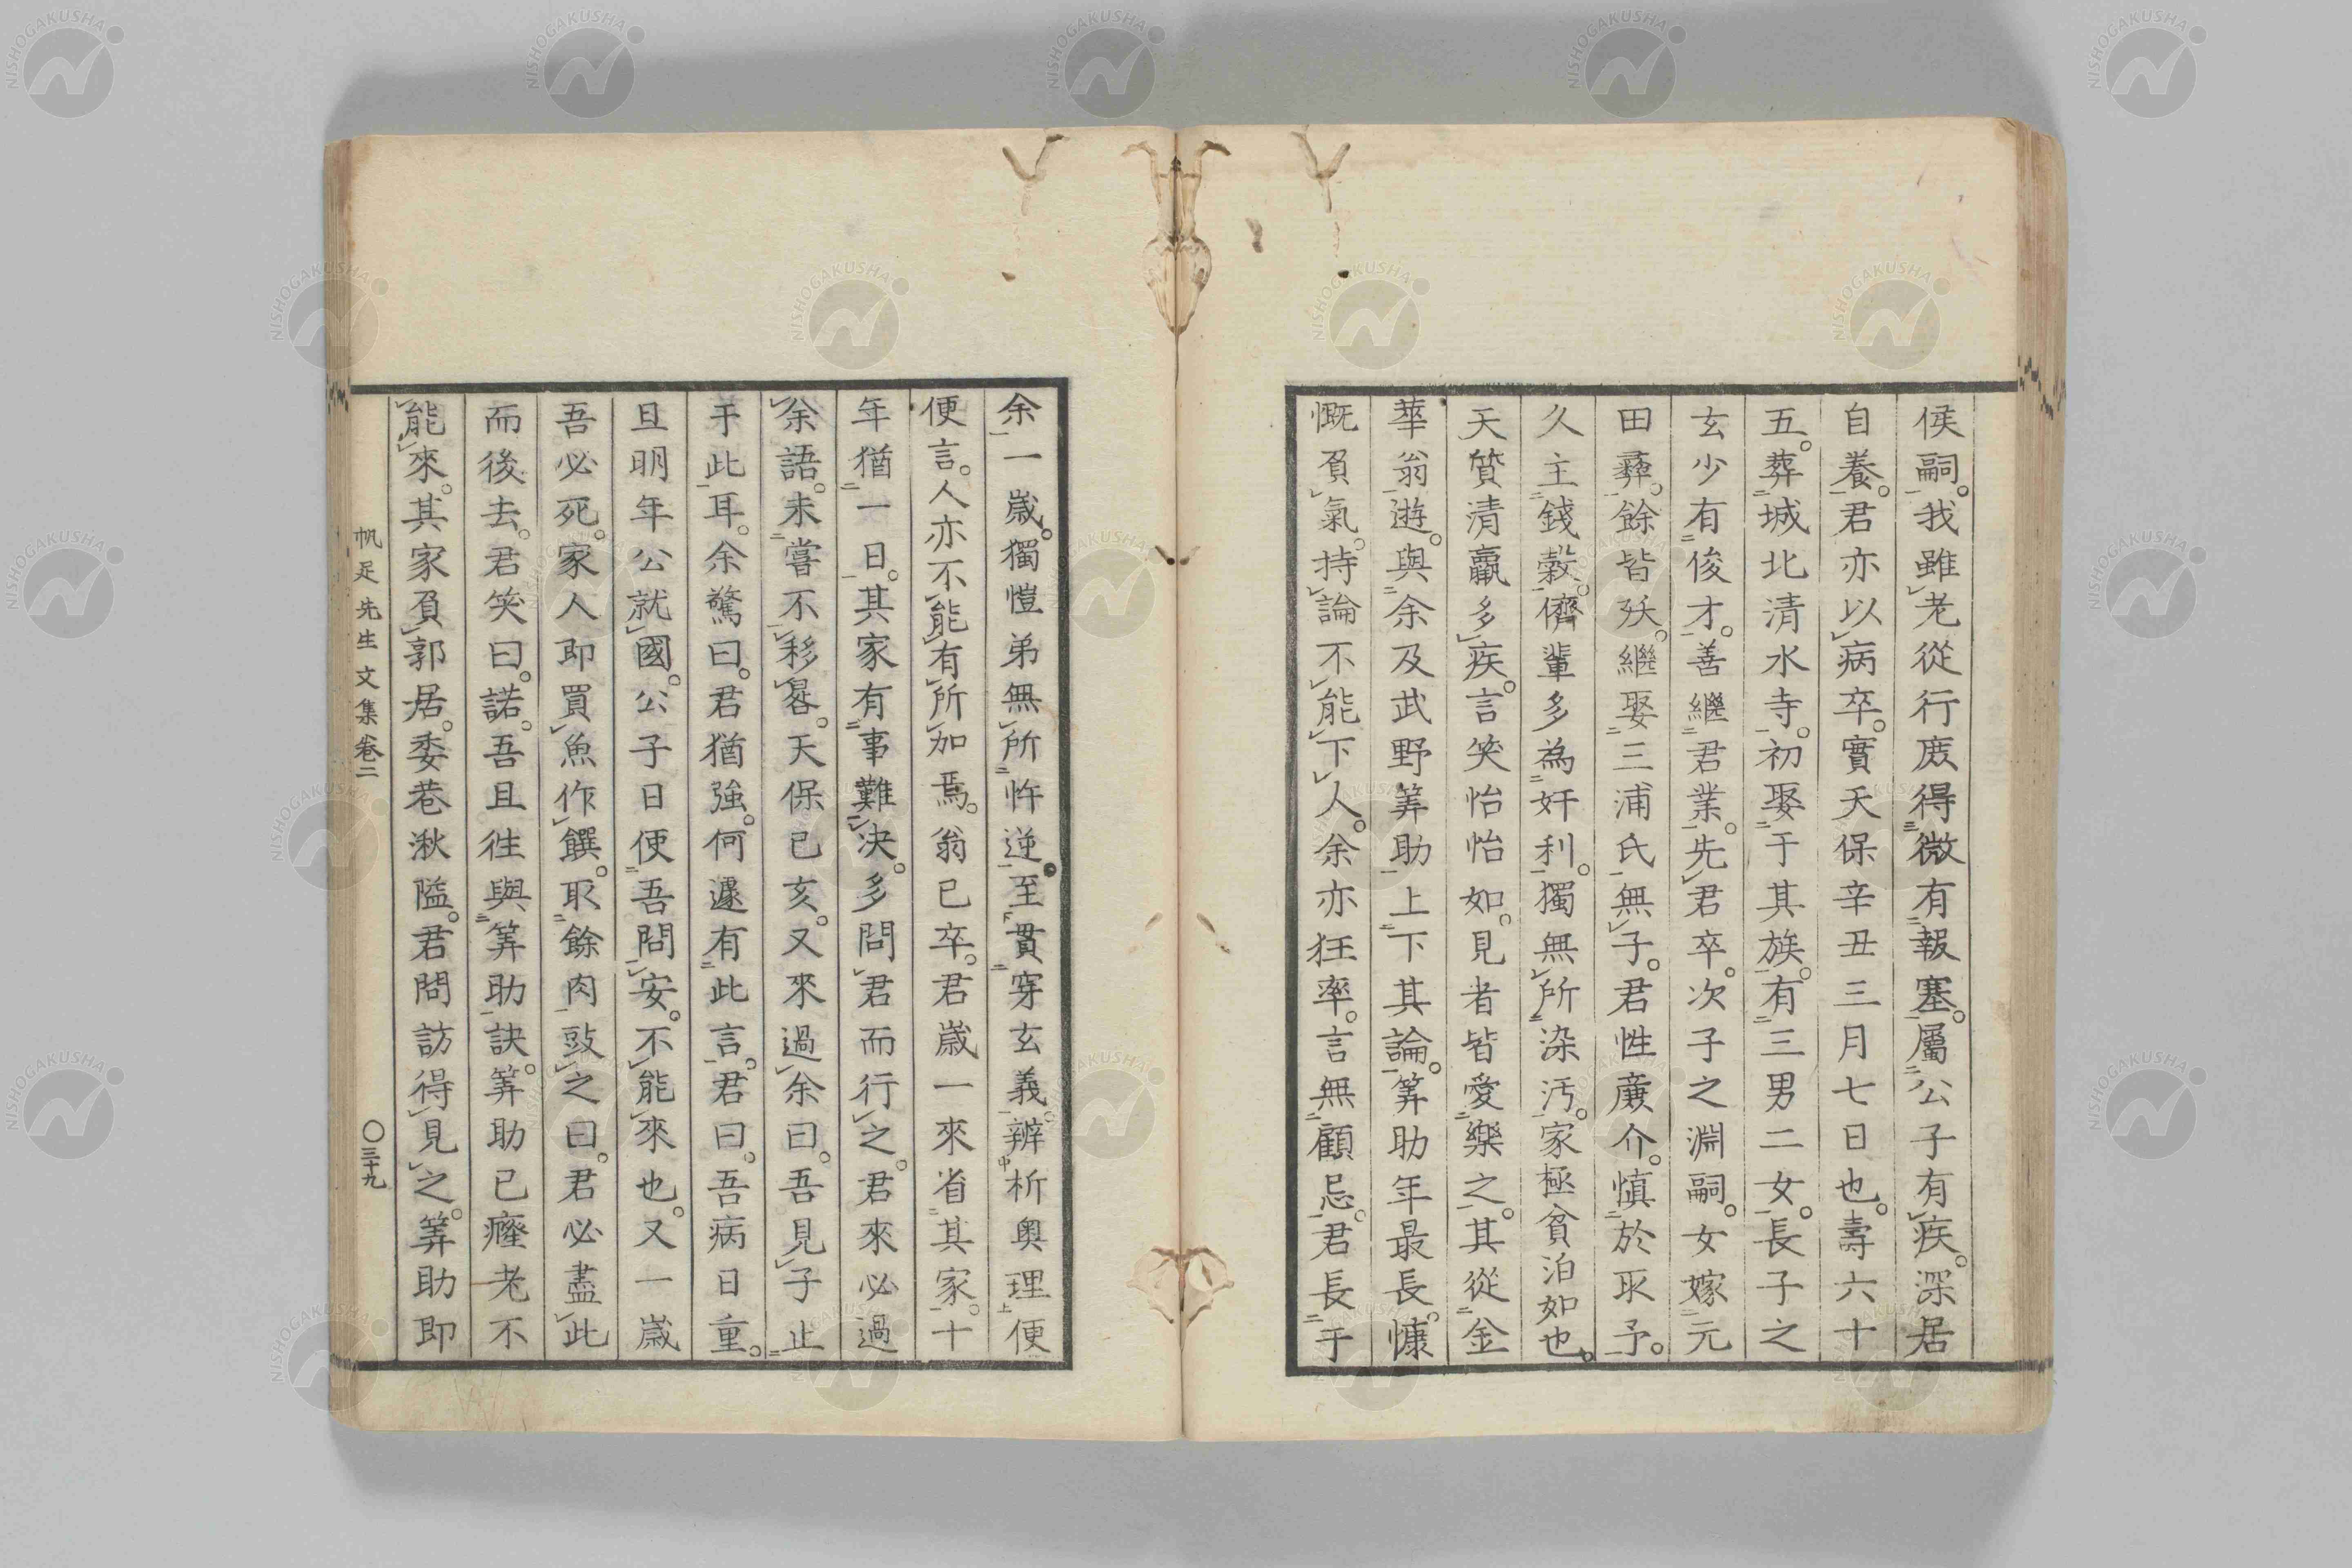 侯嗣。我雖老從行庶得微有報塞。屬公子有疾。深居
自養。君亦以病卒。實天保辛丑三月七日也。壽六十
五。葬城北清水寺。初娶于其族。有三男二女。長子之
玄少有俊才。善繼君業。先君卒。次子之淵嗣。女嫁元
田彞。餘皆殀。繼娶三浦氏無子。君性廉介。慎於取予。
久主錢穀。儕輩多為奸利。獨無所染汚。家極貧泊如也。
天質清羸多疾。言笑怡怡如。見者皆愛樂之。其從金
華翁遊。與余及武野筭助上下其論。筭助年最長。慷
慨負氣。持論不能下人。余亦狂率。言無顧忌。君長于
余一歲。獨愷弟無所忤逆。至貫穿玄義辨析奥理便
便言。人亦不能有所加焉。翁已卒。君歲一來省其家。十
年猶一日。其家有事難決。多問君而行之。君來必過
余語。未嘗不移晷。天保己亥。又來過余曰。吾見子止
于此耳。余驚曰。君猶強。何遽有此言。君曰。吾病日重。
且明年公就國。公子日便吾問安。不能來也。又一歲
吾必死。家人即買魚作饌。取餘肉豉之曰。君必盡此
而後去。君笑曰。諾。吾且徃與筭助訣。筭助已癃老不
能來。其家負郭居。委巷湫隘。君問訪得見之。筭助即
帆足先生文集卷二
〇三十九
NISHOGAKUSHA